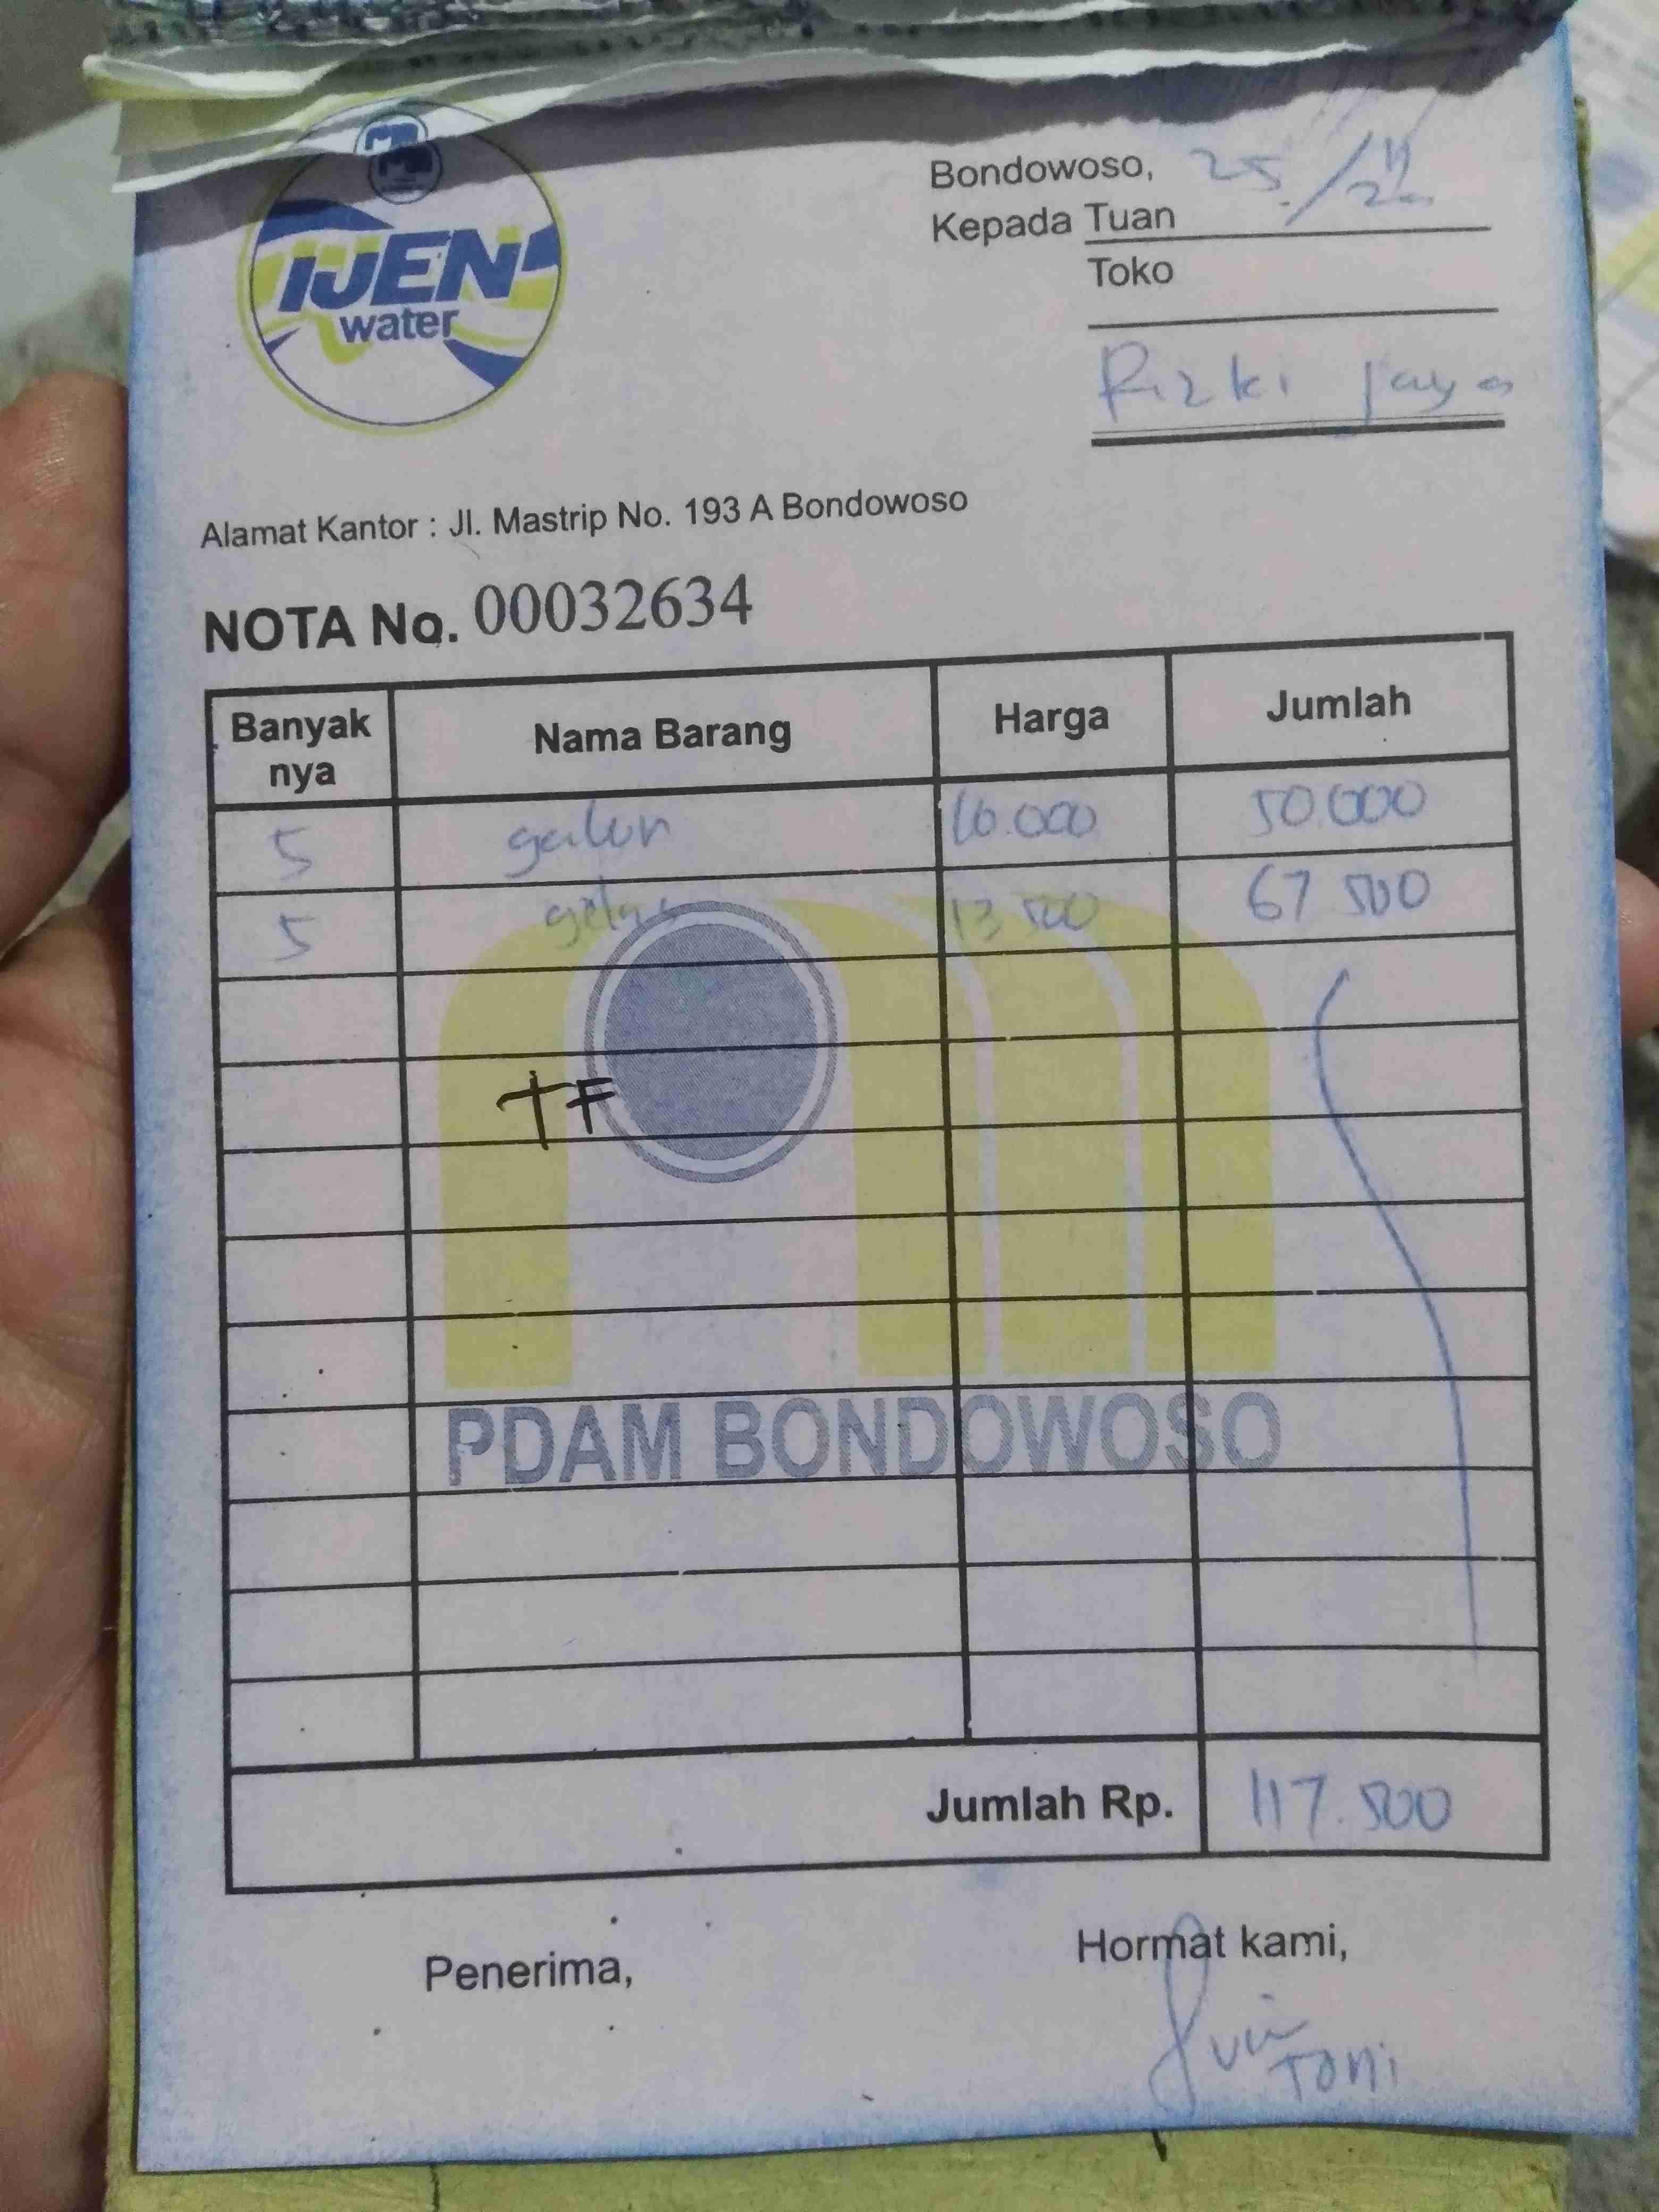 IJEN
water
Bondowoso, 25/11
Kepada Tuan
Toko
Rizki Jaya
Alamat Kantor : Jl. Mastrip No. 193 A Bondowoso
NOTA No. 00032634
Banyak nya Nama Barang Harga Jumlah
5 galon 10.000 50.000
5 gelas 13 500 67 500
TF
PDAM BONDOWOSO
Jumlah Rp. 117.500
Penerima,
Hormat kami,
Toni